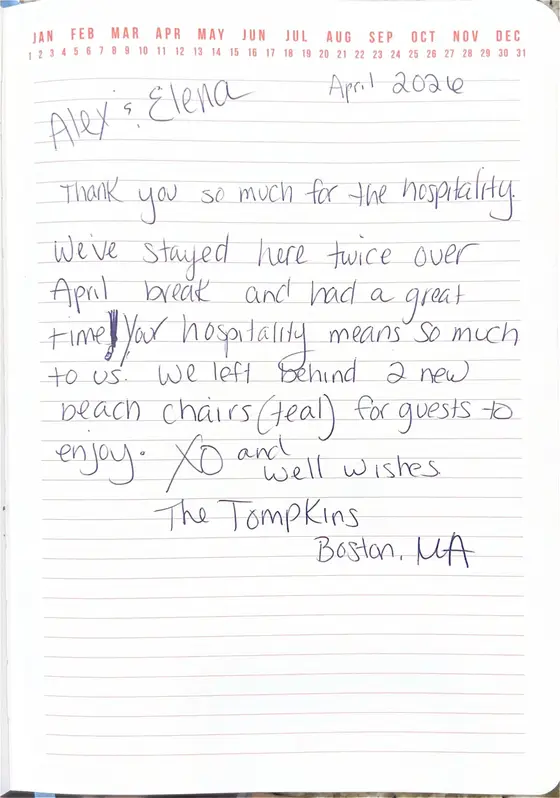 JAN FEB MAR APR MAY JUN JUL AUG SEP OCT NOV DEC
1 2 3 4 5 6 7 8 9 10 11 12 13 14 15 16 17 18 19 20 21 22 23 24 25 26 27 28 29 30 31
April 2026
Alex & Elena
Thank you so much for the hospitality.
We've stayed here twice over
April break and had a great
time! Your hospitality means so much
to us. We left behind 2 new
beach chairs (teal) for guests to
enjoy. XO and
well wishes
The Tompkins
Boston, MA